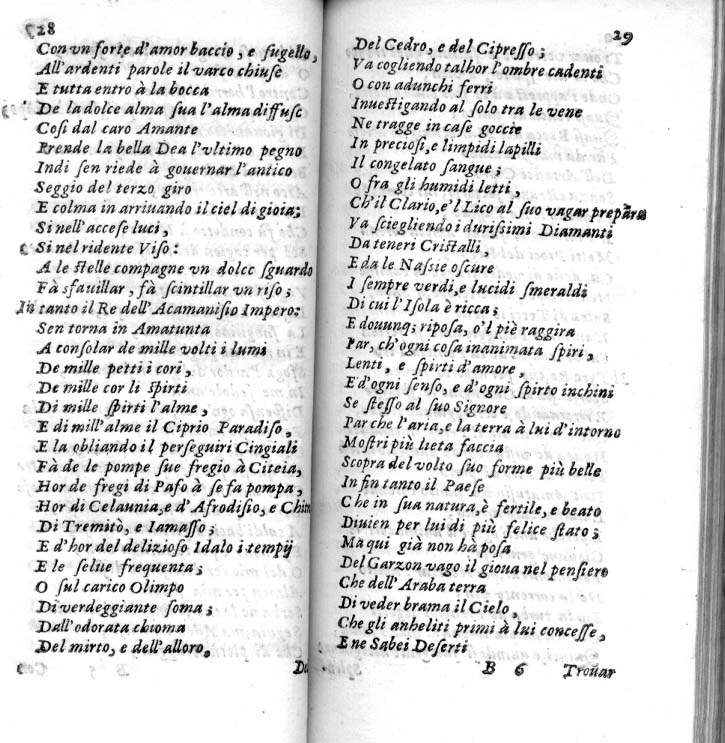 28
Con vn forte d'amor baccio, e sugello,
All'ardenti parole il varco chiuse
E tutta entro à la bocca
De la dolce alma sua l'alma diffuse
Cosi dal caro Amante
Prende la bella Dea l'vltimo pegno
Indi sen riede à gouernar l'antico
Seggio del terzo giro
E colma in arriuando il ciel di gioia;
Si nell'accese luci,
Si nel ridente Viso:
A le stelle compagne vn dolce sguardo
Fà sfauillar, fà scintillar vn riso;
In tanto il Re dell'Acamanisio Impero:
Sen torna in Amatunta
A consolar de mille volti i lumi
De mille petti i cori,
De mille cor li spirti
Di mille spirti l'alme,
E di mill'alme il Ciprio Paradiso,
E la obliando il perseguiri Cingiali
Fà de le pompe sue fregio à Citeia,
Hor de fregi di Pafo à se fa pompa,
Hor di Celaunia, e d'Afrodisio, e
Di Tremitò, e Iamasso;
E d'hor del delizioso Idalo i tempij
E le selue frequenta;
O sul carico Olimpo
Di verdeggiante soma;
Dall'odorata chioma
Del mirto, e dell'alloro,
29
Del Cedro, e del Cipresso;
Va cogliendo talhor l'ombre cadenti
O con adunchi ferri
Inuestigando al solo tra le vene
Ne tragge in case goccie
In preciosi, e limpidi lapilli
Il congelato sangue;
O fra gli humidi letti,
Ch'il Clario, e'l Lico al suo vagar prepara
Va sciegliendo i durissimi Diamanti
Da teneri Cristalli,
E da le Nassie oscure
I sempre verdi, e lucidi smeraldi
Di cui l'Isola è ricca;
E douunq; riposa, o'l piè raggira
Par, ch'ogni cosa inanimata spiri,
Lenti, e spirti d'amore,
E d'ogni senso, e d'ogni spirto inchini
Se stesso al suo Signore
Par che l'aria, e la terra à lui d'intorno
Mostri più lieta faccia
Scopra del volto suo forme più belle
In fin tanto il Paese
Che in sua natura, è fertile, e beato
Diuien per lui di più felice stato;
Ma qui già non hà posa
Del Garzon vago il gioua nel pensiero
Che dell'Araba terra
Di veder brama il Cielo,
Che gli anheliti primi à lui concesse,
E ne Sabei Deserti
B 6 Trouar